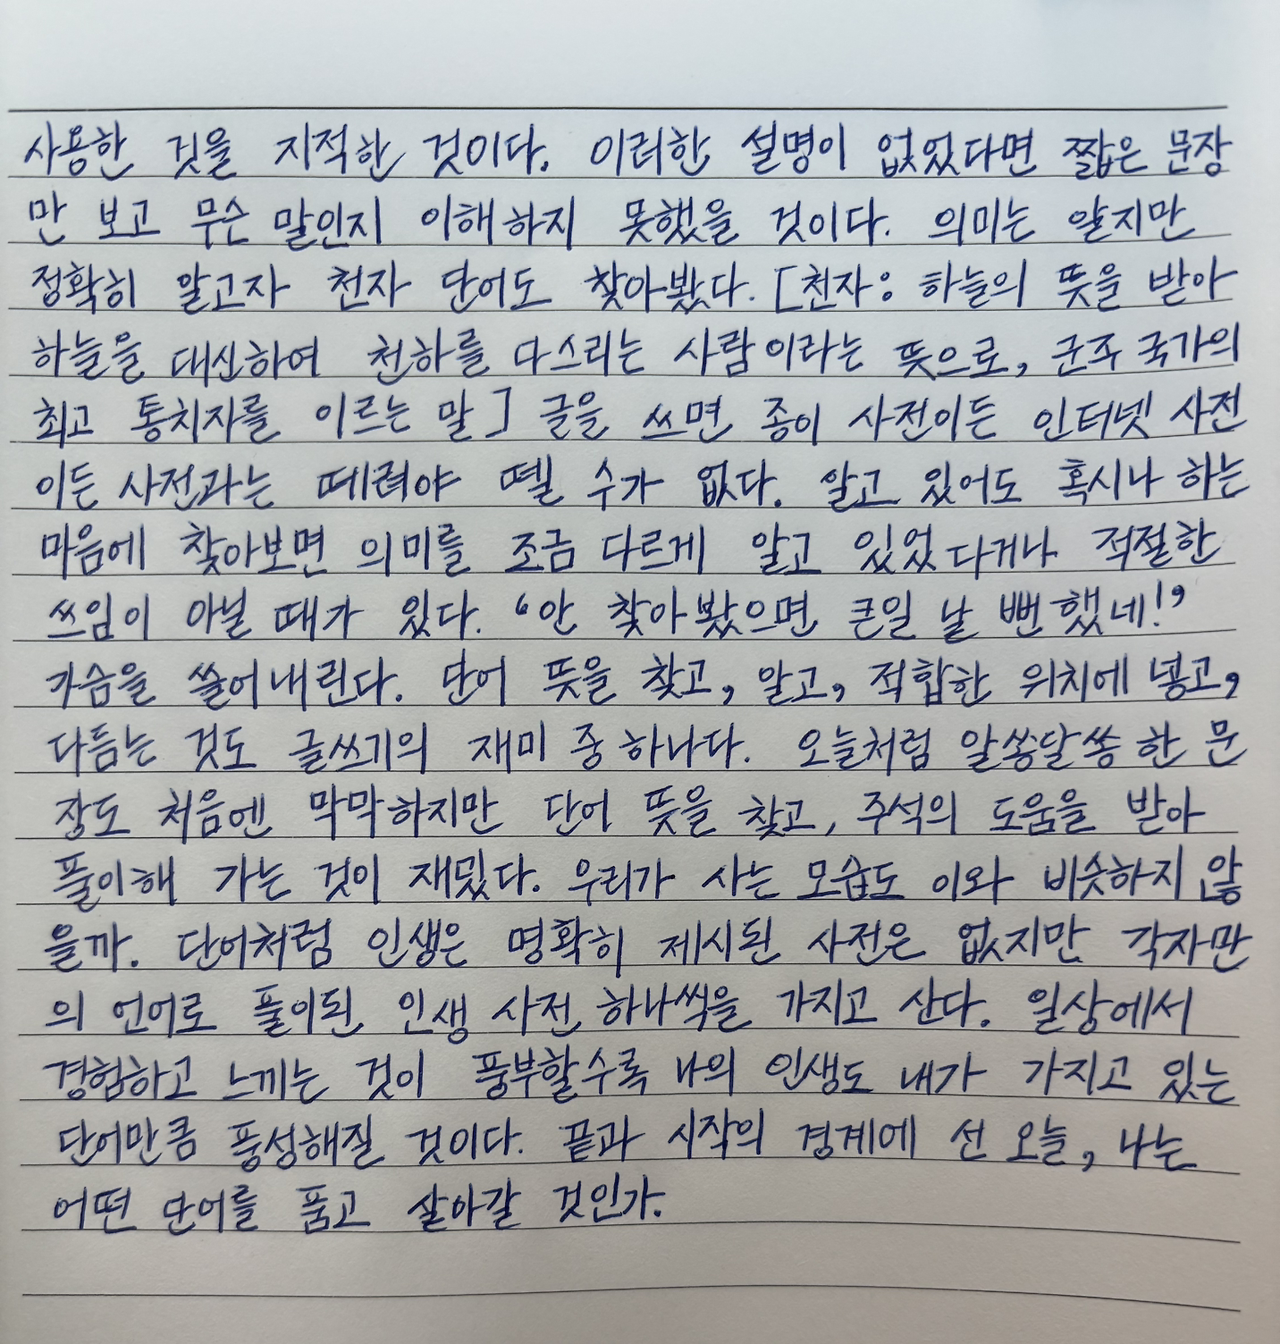 사용한 것을 지적한 것이다. 이러한 설명이 없었다면 짧은 문장
만 보고 무슨 말인지 이해하지 못했을 것이다. 의미는 알지만
정확히 알고자 천자 단어도 찾아봤다. [천자: 하늘의 뜻을 받아
하늘을 대신하여 천하를 다스리는 사람이라는 뜻으로, 군주 국가의
최고 통치자를 이르는 말] 글을 쓰면 종이 사전이든 인터넷 사전
이든 사전과는 떼려야 뗄 수가 없다. 알고 있어도 혹시나 하는
마음에 찾아보면 의미를 조금 다르게 알고 있었다거나 적절한
쓰임이 아닐 때가 있다. '안 찾아봤으면 큰일 날 뻔했네!'
가슴을 쓸어내린다. 단어 뜻을 찾고, 알고, 적합한 위치에 넣고,
다듬는 것도 글쓰기의 재미 중 하나다. 오늘처럼 알쏭달쏭한 문
장도 처음엔 막막하지만 단어 뜻을 찾고, 주석의 도움을 받아
풀이해 가는 것이 재밌다. 우리가 사는 모습도 이와 비슷하지 않
을까. 단어처럼 인생은 명확히 제시된 사전은 없지만 각자만
의 언어로 풀이된 인생 사전 하나씩을 가지고 산다. 일상에서
경험하고 느끼는 것이 풍부할수록 나의 인생도 내가 가지고 있는
단어만큼 풍성해질 것이다. 끝과 시작의 경계에 선 오늘, 나는
어떤 단어를 품고 살아갈 것인가.